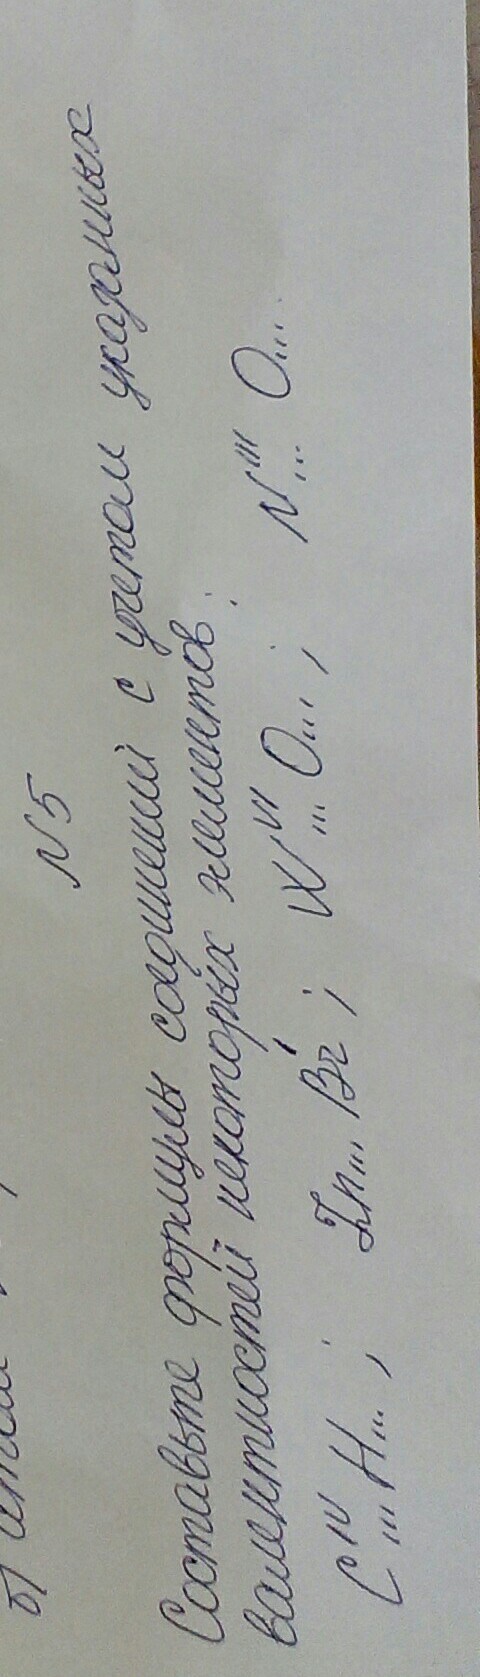 N 5
Составьте формулы соединений с учетом указанных
валентностей некоторых элементов:
C^IV...H...; Zn...Br^I; W^VI...O...; N^III...O....